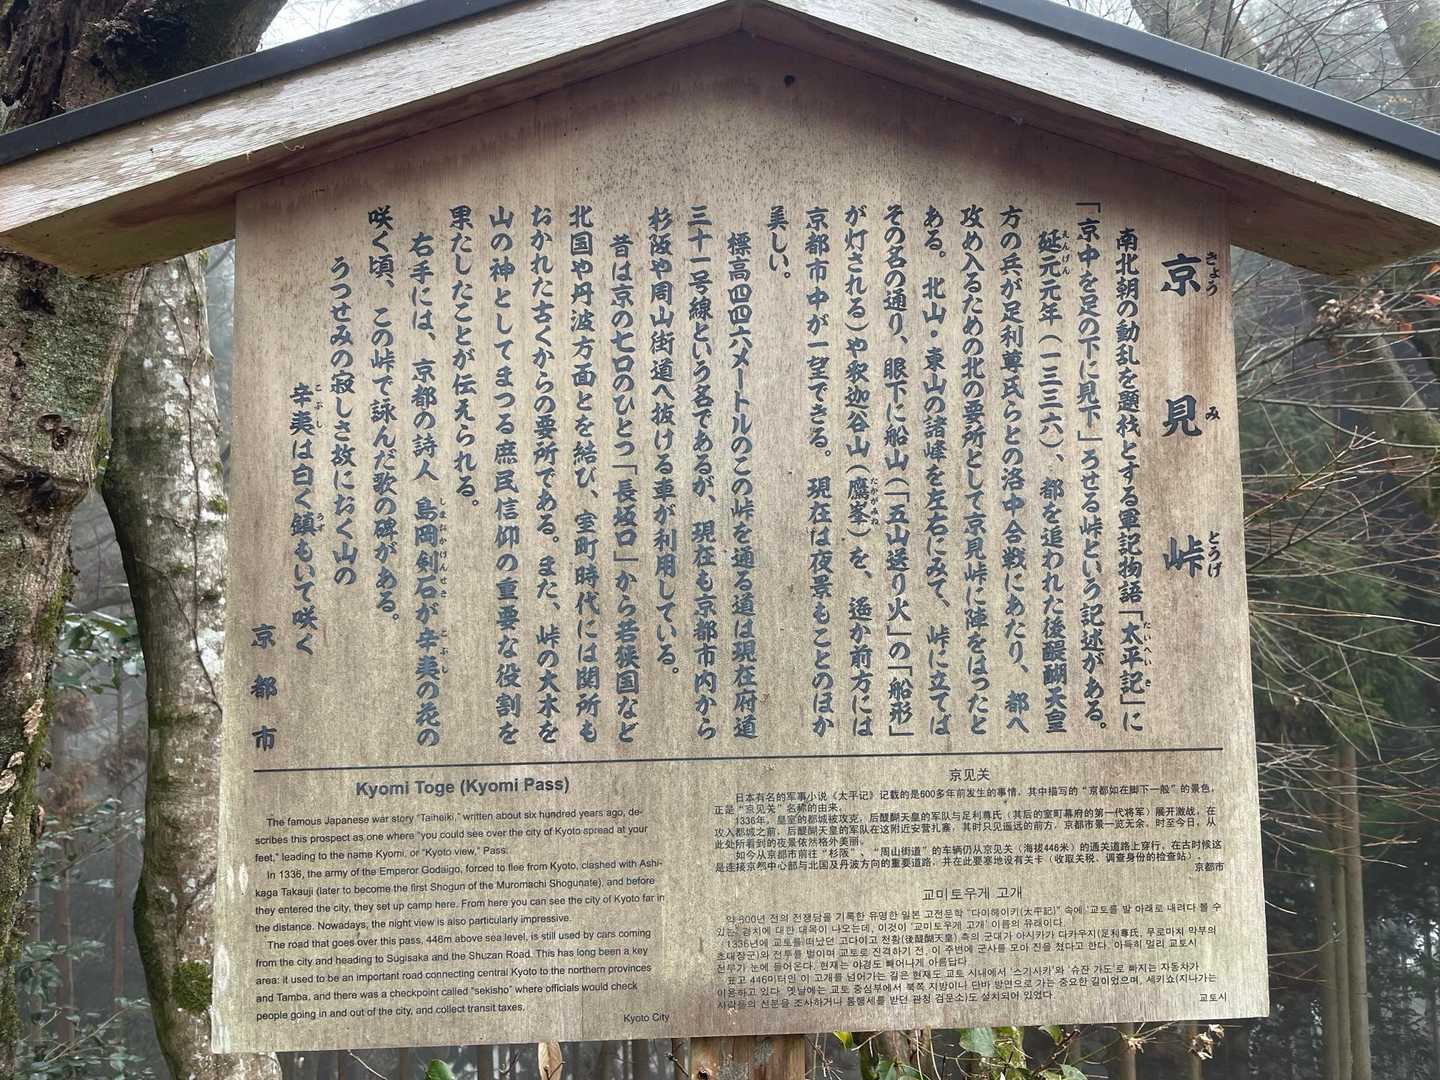 京見峠
きょうみとうげ
南北朝の動乱を題材とする軍記物語「太平記」に
たいへいき
「京中を足の下に見下」ろせる峠という記述がある。
延元元年(一三三六)、都を追われた後醍醐天皇
えんげん
方の兵が足利尊氏らとの洛中合戦にあたり、都へ
攻め入るための北の要所として京見峠に陣をはったと
ある。北山・東山の諸峰を左右にみて、峠に立てば
その名の通り、眼下に船山(「五山送り火」の「船形」
が灯される)や釈迦谷山(鷹峯)を、遥か前方には
たかがみね
京都市中が一望できる。現在は夜景もことのほか
美しい。
標高四四六メートルのこの峠を通る道は現在府道
三十一号線という名であるが、現在も京都市内から
杉阪や周山街道へ抜ける車が利用している。
昔は京の七口のひとつ「長坂口」から若狭国など
北国や丹波方面とを結び、室町時代には関所も
おかれた古くからの要所である。また、峠の大木を
山の神としてまつる庶民信仰の重要な役割を
果たしたことが伝えられる。
右手には、京都の詩人 島岡剣石が辛夷の花の
しまおかけんせき
こぶし
咲く頃、この峠で詠んだ歌の碑がある。
うつせみの寂しさ故におく山の
辛夷は白く鎮もいて咲く
こぶし
うず
京都市
Kyomi Toge (Kyomi Pass)
The famous Japanese war story "Taiheiki," written about six hundred years ago, de-
scribes this prospect as one where "you could see over the city of Kyoto spread at your
feet," leading to the name Kyomi, or "Kyoto view," Pass.
In 1336, the army of the Emperor Godaigo, forced to flee from Kyoto, clashed with Ashi-
kaga Takauji (later to become the first Shogun of the Muromachi Shogunate), and before
they entered the city, they set up camp here. From here you can see the city of Kyoto far in
the distance. Nowadays, the night view is also particularly impressive.
The road that goes over this pass, 446m above sea level, is still used by cars coming
from the city and heading to Sugisaka and the Shuzan Road. This has long been a key
area: it used to be an important road connecting central Kyoto to the northern provinces
and Tamba, and there was a checkpoint called "sekisho" where officials would check
people going in and out of the city, and collect transit taxes.
Kyoto City
京见关
日本有名的军事小说《太平记》记载的是600多年前发生的事情。其中描写的"京都如在脚下一般"的景色,
正是"京见关"名称的由来。
1336年，皇室的都城被攻克，后醍醐天皇的军队与足利尊氏（其后的室町幕府的第一代将军）展开激战，在
攻入都城之前，后醍醐天皇的军队在这附近安营扎寨，其时只见遥远的前方，京都市景一览无余。时至今日，从
此处所看到的夜景依然格外美丽。
如今从京都市前往"杉阪"、"周山街道"的车辆仍从京见关（海拔446米）的通关道路上穿行。在古时候这
是连接京都中心部与北国及丹波方向的重要道路，并在此要塞地设有关卡（收取关税、调查身份的检查站）。
京都市
교미토우게 고개
약 600년 전의 전쟁담을 기록한 유명한 일본 고전문학 "다이헤이키(太平記)" 속에 '교토를 발 아래로 내려다 볼 수
있는' 경치에 대한 대목이 나오는데, 이것이 '교미토우게 고개' 이름의 유래이다.
1336년에 교토를 떠났던 고다이고 천황(後醍醐天皇) 측의 군대가 아시카가 다카우지(足利尊氏, 무로마치 막부의
초대장군)와 전투를 벌이며 교토로 진격하기 전, 이 주변에 군사를 모아 진을 쳤다고 한다. 아득히 멀리 교토시
전부가 눈에 들어온다. 현재는 야경도 빼어나게 아름답다.
표고 446미터인 이 고개를 넘어가는 길은 현재도 교토 시내에서 '스기사카'와 '슈잔 가도'로 빠지는 자동차가
이용하고 있다. 옛날에는 교토 중심부에서 북쪽 지방이나 단바 방면으로 가는 중요한 길이었으며, 세키쇼(지나가는
사람들의 신분을 조사하거나 통행세를 받던 관청 검문소)도 설치되어 있었다.
교토시